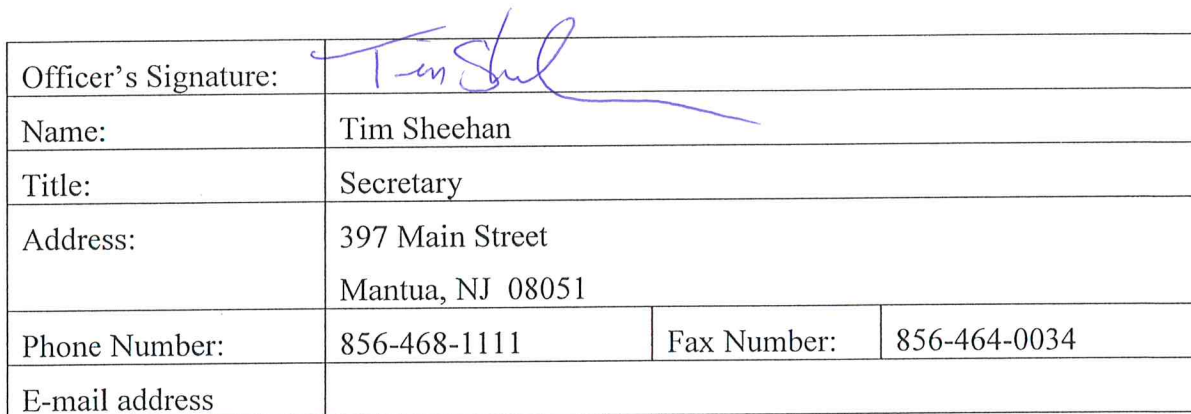 Officer's Signature: Tim Sh
Name: Tim Sheehan
Title: Secretary
Address: 397 Main Street
Mantua, NJ 08051
Phone Number: 856-468-1111 Fax Number: 856-464-0034
E-mail address